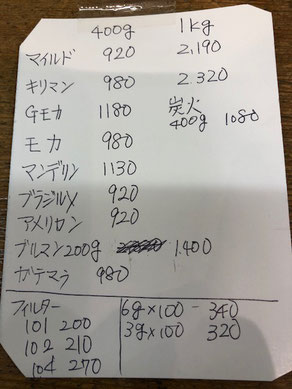 400g 1kg
マイルド 920 2,190
キリマン 980 2.320
Gモカ 1180 炭火 400g 1080
モカ 980
マンデリン 1130
ブラジルX 920
アメリカン 920
ブルマン200g 1.400
ガテマラ 980
フィルター
101 200
102 210
104 270
6g×100 - 340
3g×100 320